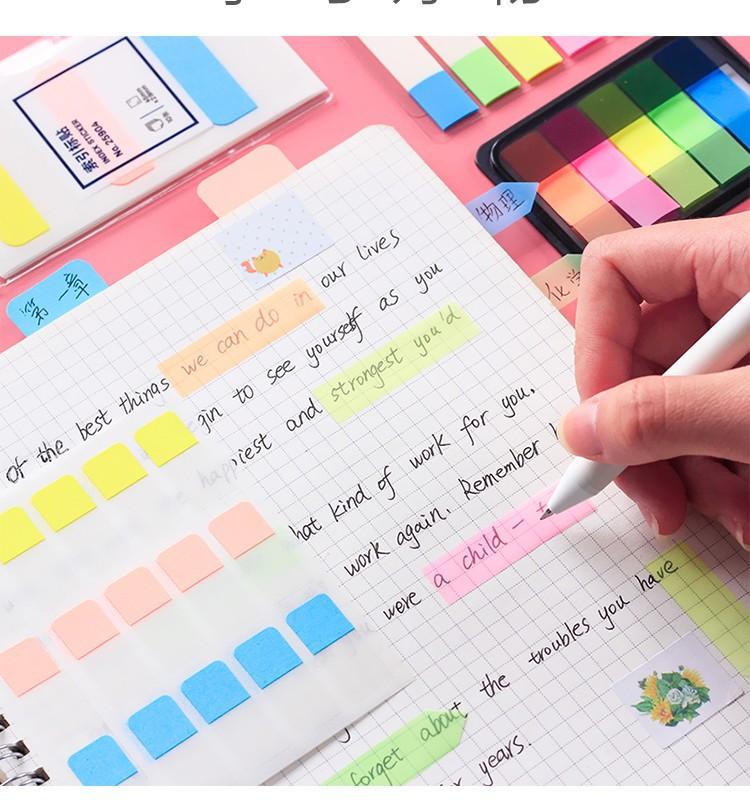 索引标贴
INDEX STICKER
No.25904
第一章
物理
化学
our lives
we can do in
of the best things
as you
gin to see yourself
strongest you'd
happiest and
hat kind of work for you.
work again. Remember
were a child -
the troubles you have
forget about
years.